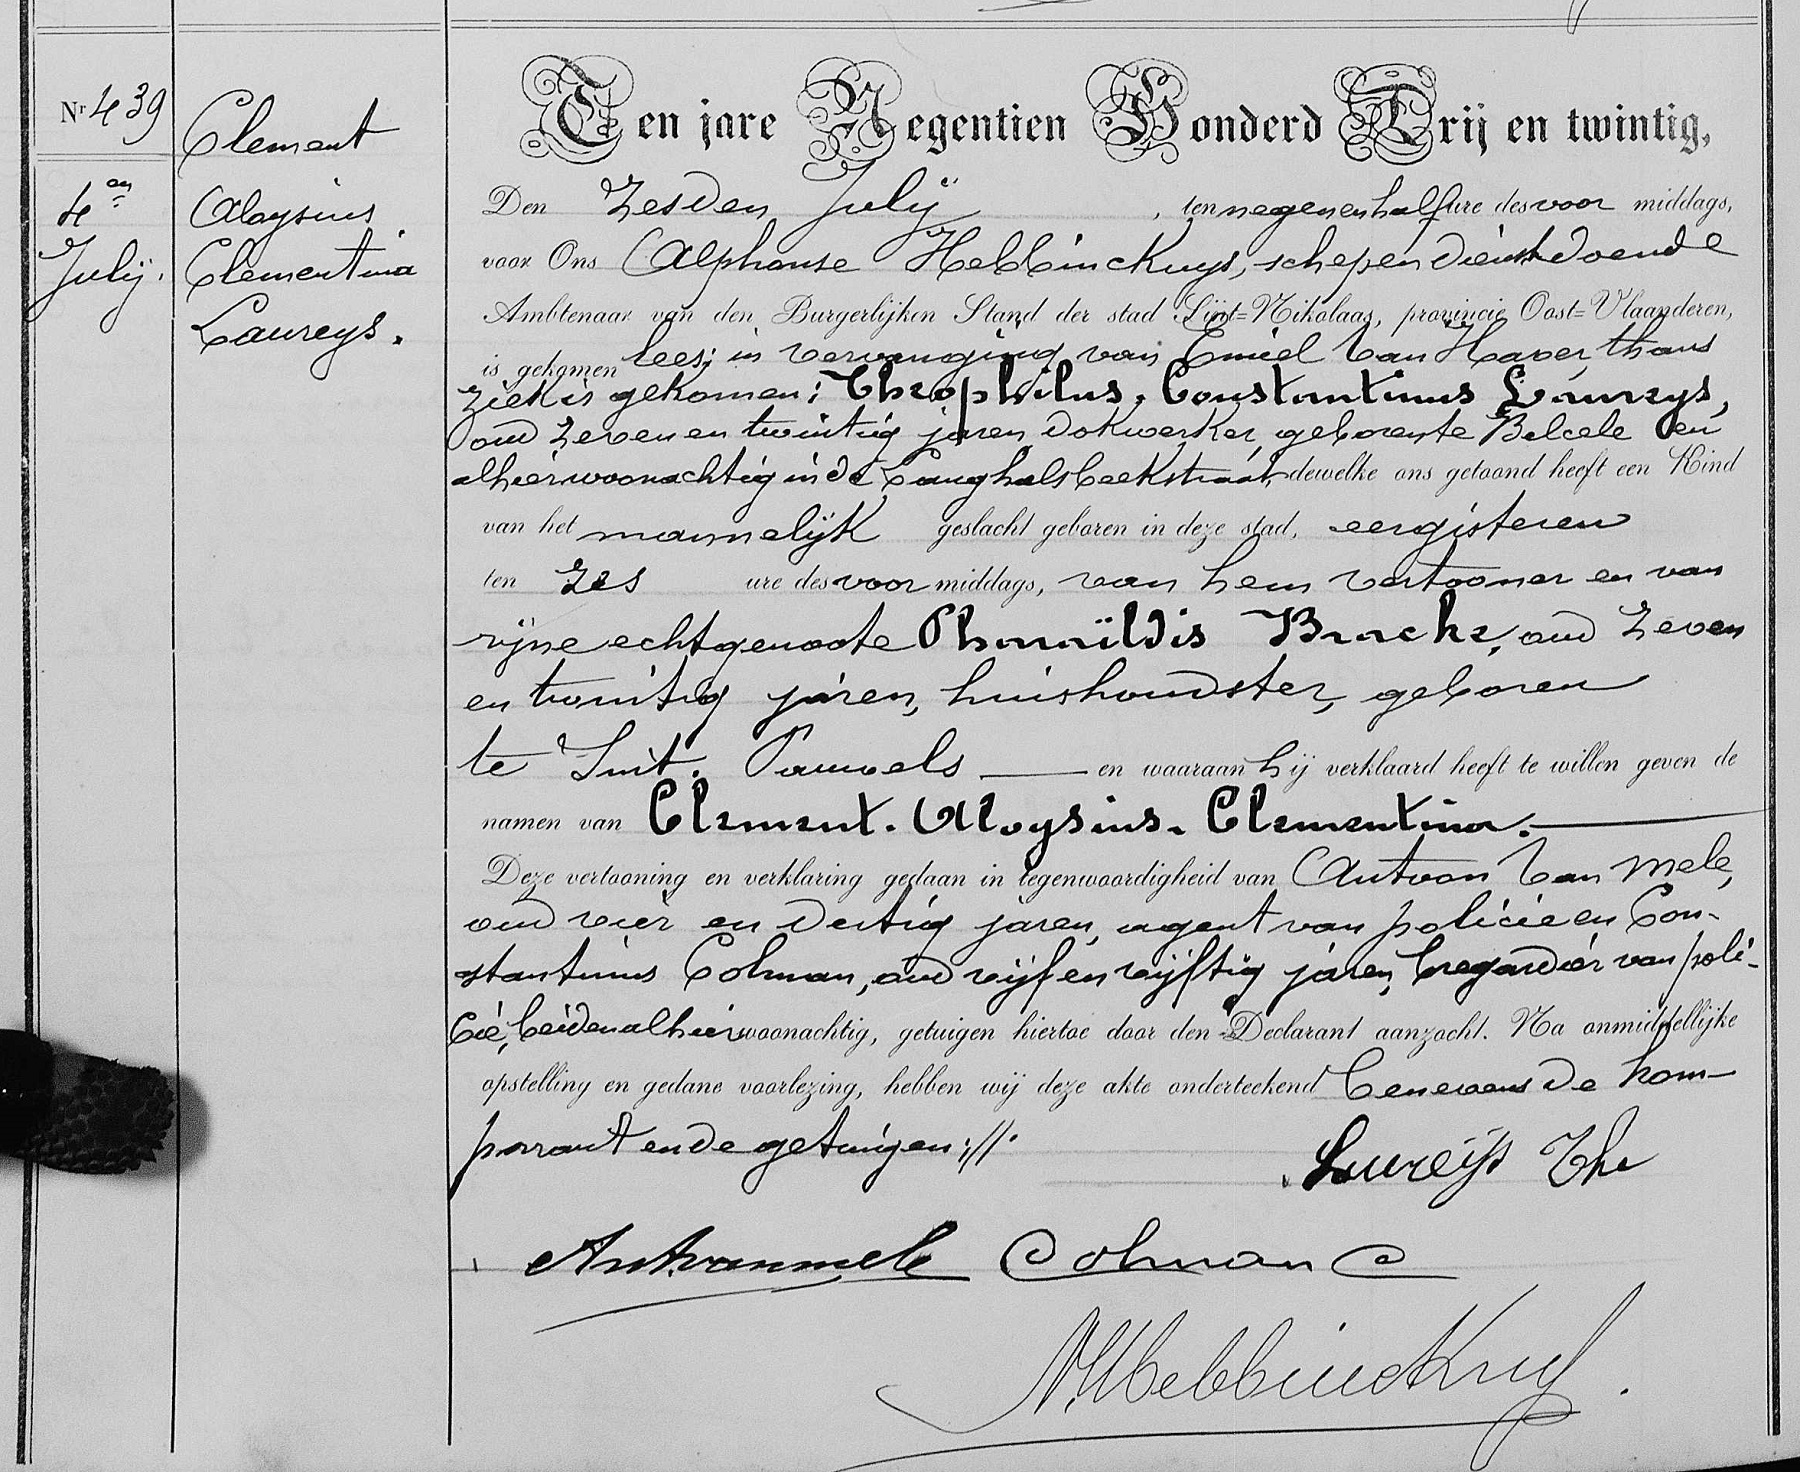 Nr 439
4en
Julij.
Clement
Aloysius
Clementina
Laureys.
Ten jare Negentien Honderd Drij en twintig,
Den Zesden Julij, ten negen en half ure des voor middags,
voor Ons Alphonse Hebbinckuys, schepen dienstdoende
Ambtenaar van den Burgerlijken Stand der stad Sint=Nikolaas, provincie Oost=Vlaanderen,
is gekomen lees; in vervanging van Emiel Van Haver, thans
ziek is gekomen: Theophilus, Constantinus Laureys,
oud zeven en twintig jaren, dokwerker, geboren te Belcele en
alhier woonachtig in de Langhalsbeekstraat, dewelke ons getoond heeft een Kind
van het mannelijk geslacht geboren in deze stad, eergisteren
ten zes ure des voor middags, van hem vertooner en van
zijne echtgenoote Pharaïldis Bracke, oud zeven
en twintig jaren, huishoudster, geboren
te Sint. Pauwels — en waaraan hij verklaard heeft te willen geven de
namen van Clement. Aloysius. Clementina. —
Deze vertooning en verklaring gedaan in tegenwoordigheid van Antoon Van Mele,
oud vier en dertig jaren, agent van policie en Con-
stantinus Colman, oud vijf en vijftig jaren, bregardier van poli-
cie, beiden alhier woonachtig, getuigen hiertoe door den Declarant aanzocht. Na onmiddellijke
opstelling en gedane voorlezing, hebben wij deze akte onderteekend benevens de kom-
parant en de getuigen://.
Laureijs The
Ant van mele Colman C
A Hebbinckuys.